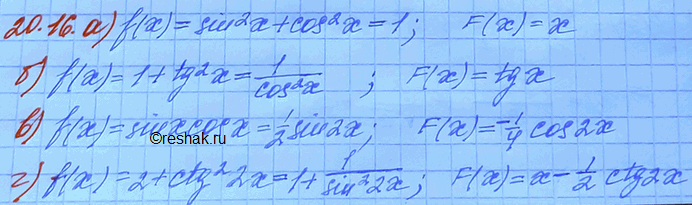 20.16. а) f(x) = sin²x + cos²x = 1; F(x) = x
б) f(x) = 1 + tg²x = 1/cos²x ; F(x) = tg x
©reshak.ru
в) f(x) = sinx cosx = 1/2 sin2x; F(x) = -1/4 cos2x
г) f(x) = 2 + ctg²2x = 1 + 1/sin²2x; F(x) = x - 1/2 ctg2x